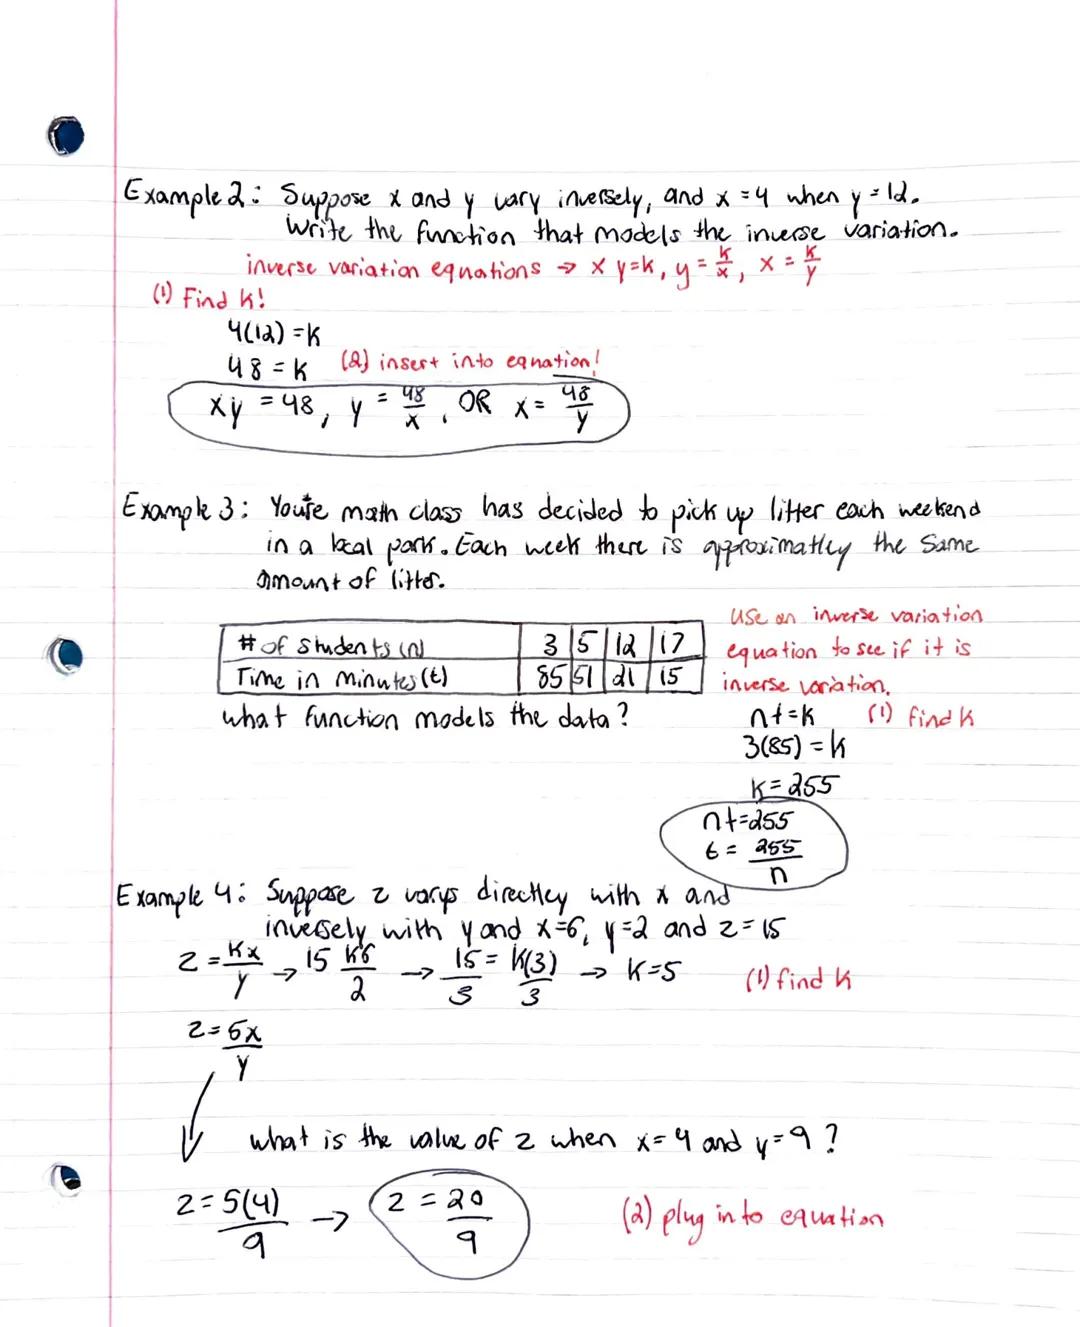 Example 2: Suppose x and y vary inversely, and x = 4 when y = 12.
Write the function that models the inverse variation.
inverse variation equations → xy=k, y = k/x, x = k/y
(1) Find k!
4(12) = k
48 = k (2) insert into equation!
xy = 48, y = 48/x, OR x = 48/y
Example 3: You're math class has decided to pick up litter each weekend
in a local park. Each week there is approximatley the same
amount of litter.
# of students (n) 3 5 12 17
Time in minutes (t) 85 51 21 15
Use an inverse variation
equation to see if it is
inverse variation.
what function models the data?
nt=k (1) find k
3(85) = k
k = 255
nt=255
6 = 255/n
Example 4: Suppose z varys directley with x and
inversely with y and x=6, y=2 and z=15
z = kx/y → 15 k6/2 → 15/3 = k(3)/3 → k=5 (1) find k
z = 5x/y
what is the value of z when x=4 and y=9?
z = 5(4)/9 → z = 20/9 (2) plug into equation